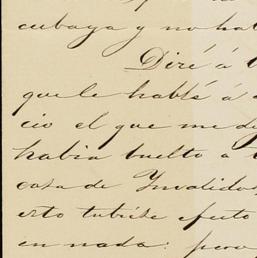 cubaya y no ha
Diré á
que le hablé á
cio el que me d
habia buelto a
casa de Invalidos
esto tubiese efecto
en nada: pero